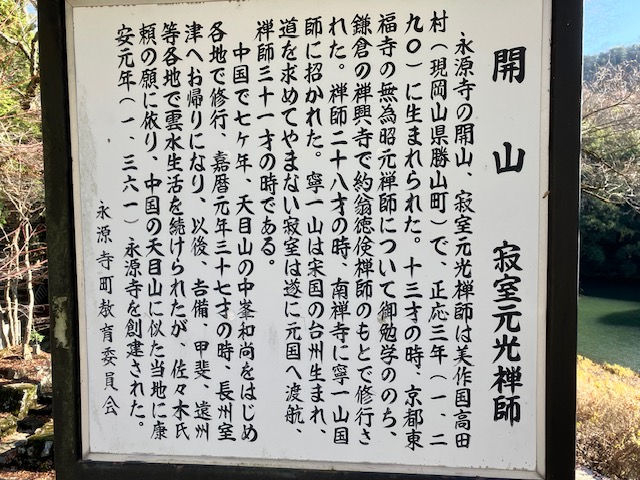 開山　寂室元光禅師
永源寺の開山、寂室元光禅師は美作国高田
村（現岡山県勝山町）で、正応三年（一、二
九〇）に生まれられた。十三才の時、京都東
福寺の無為昭元禅師について御勉学ののち、
鎌倉の禅興寺で約翁徳倹禅師のもとで修行さ
れた。禅師二十八才の時、南禅寺に寧一山国
師に招かれた。寧一山は宋国の台州生まれ、
道を求めてやまない寂室は遂に元国へ渡航、
禅師三十一才の時である。
中国で七ヶ年、天目山の中峯和尚をはじめ
各地で修行、嘉暦元年三十七才の時、長州室
津へお帰りになり、以後、吉備、甲斐、遠州
等各地で雲水生活を続けられたが、佐々木氏
頼の願に依り、中国の天目山に似た当地に康
安元年（一、三六一）永源寺を創建された。
永源寺町教育委員会